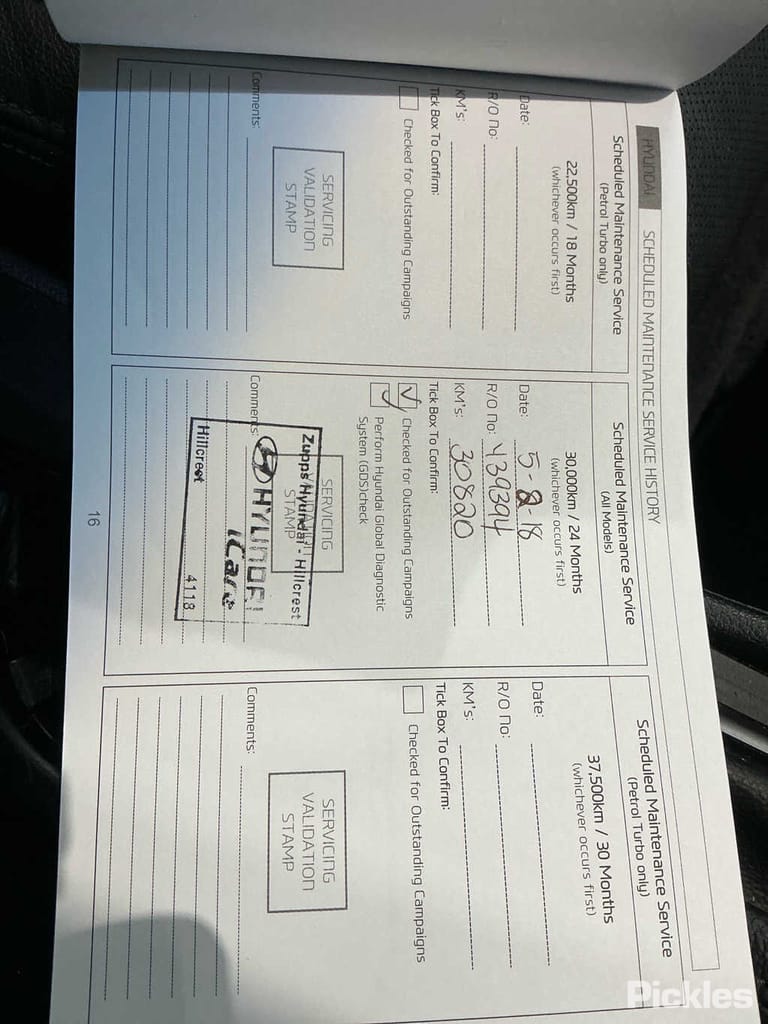 HYUNDAI SCHEDULED MAINTENANCE SERVICE HISTORY
Scheduled Maintenance Service
(Petrol Turbo only)
22,500km / 18 Months
(whichever occurs first)
Date:
R/O No:
KM's:
Tick Box To Confirm:
Checked for Outstanding Campaigns
SERVICING
VALIDATION
STAMP
Comments:
Scheduled Maintenance Service
(All Models)
30,000km / 24 Months
(whichever occurs first)
Date: 5-2-18
R/O No: 439394
KM's: 30820
Tick Box To Confirm:
Checked for Outstanding Campaigns
Perform Hyundai Global Diagnostic
System (GDS)check
SERVICING
VALIDATION
STAMP
Zupps Hyundai - Hillcrest
HYUNDAI
iCare
Hillcrest 4118
Comments:
Scheduled Maintenance Service
(Petrol Turbo only)
37,500km / 30 Months
(whichever occurs first)
Date:
R/O No:
KM's:
Tick Box To Confirm:
Checked for Outstanding Campaigns
SERVICING
VALIDATION
STAMP
Comments:
16
Pickles